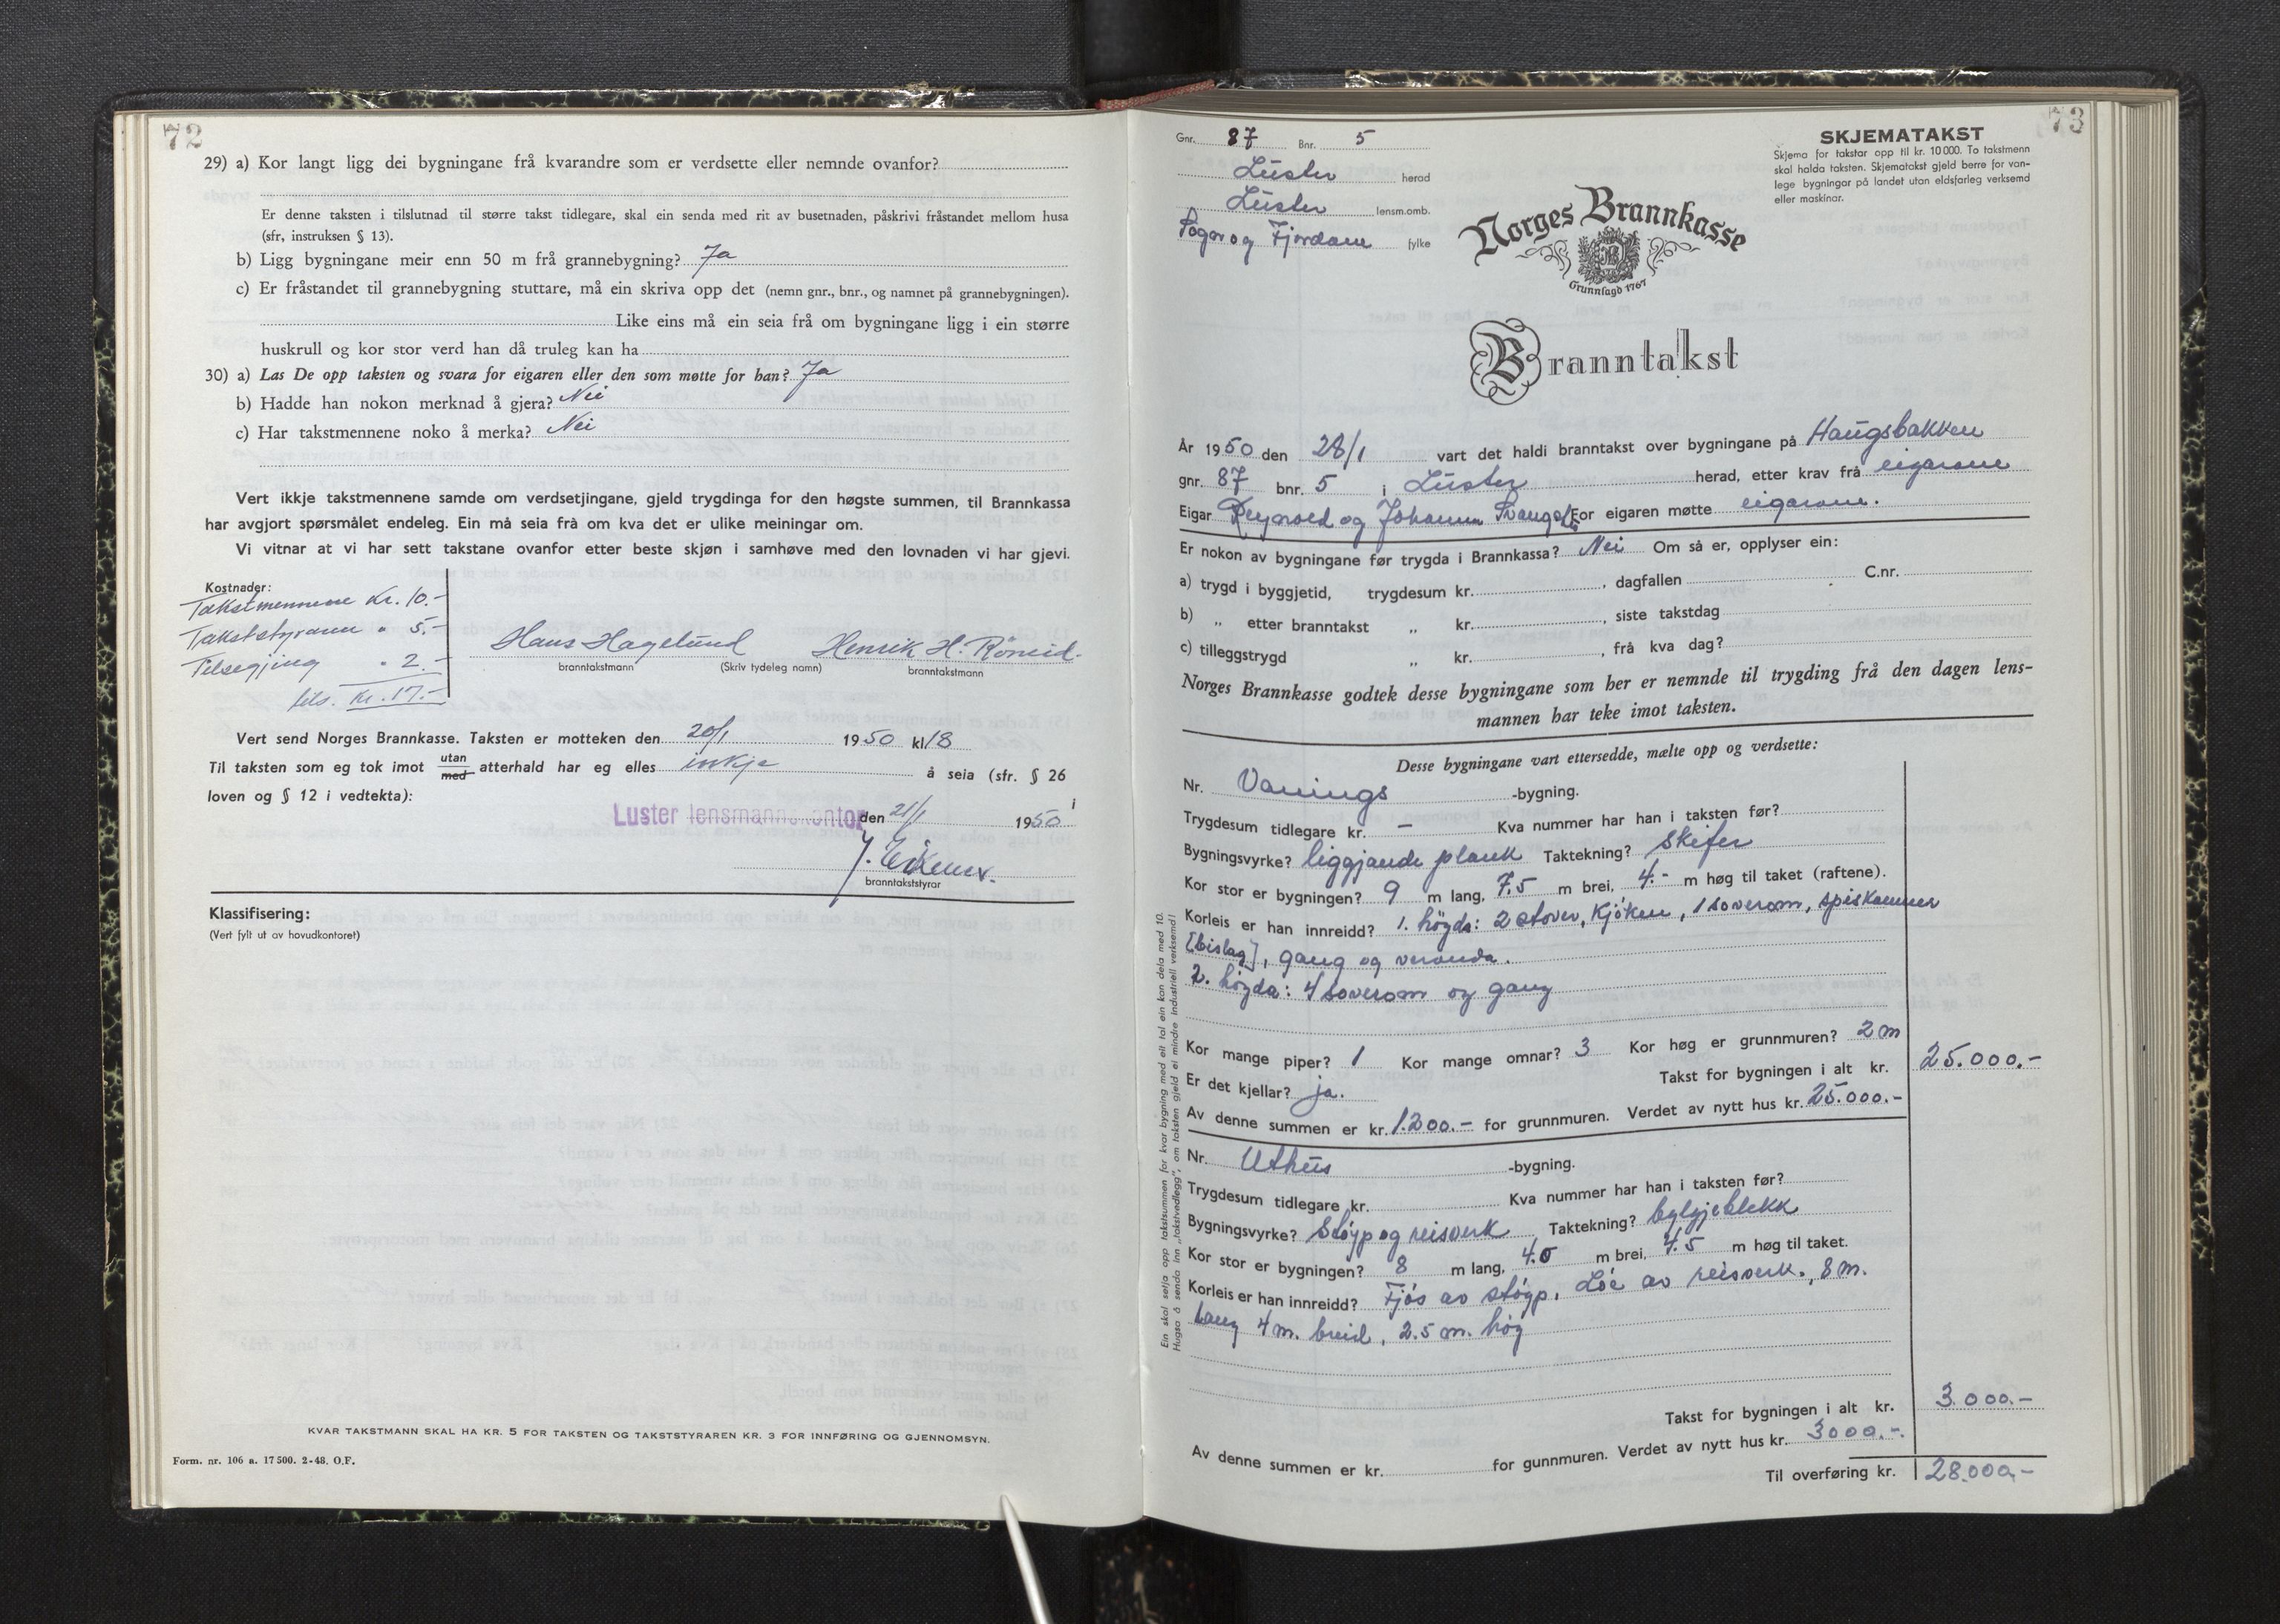 72
29) a) Kor langt ligg dei bygningane frå kvarandre som er verdsette eller nemnde ovanfor?
Er denne taksten i tilslutnad til større takst tidlegare, skal ein senda med rit av busetnaden, påskrivi fråstandet mellom husa
(sfr, instruksen § 13).
b) Ligg bygningane meir enn 50 m frå grannebygning? Ja
c) Er fråstandet til grannebygning stuttare, må ein skriva opp det (nemn gnr., bnr., og namnet på grannebygningen).
Like eins må ein seia frå om bygningane ligg i ein større
huskrull og kor stor verd han då truleg kan ha
30) a) Las De opp taksten og svara for eigaren eller den som møtte for han? Ja
b) Hadde han nokon merknad å gjera? Nei
c) Har takstmennene noko å merka? Nei
Vert ikkje takstmennene samde om verdsetjingane, gjeld trygdinga for den høgste summen, til Brannkassa
har avgjort spørsmålet endeleg. Ein må seia frå om kva det er ulike meiningar om.
Vi vitnar at vi har sett takstane ovanfor etter beste skjøn i samhøve med den lovnaden vi har gjevi.
Kostnader:
Takstmennene Kr. 10.-
Takststyraren " 5.-
Tilsegjing " 2.-
tils. Kr. 17.-
Hans Hagelund Henrik H. Röneid.
branntakstmann (Skriv tydeleg namn) branntakstmann
Vert send Norges Brannkasse. Taksten er motteken den 20/1 1950 kl 18
Til taksten som eg tok imot utan med atterhald har eg elles inkje å seia (sfr. § 26
loven og § 12 i vedtekta): i
Luster lensmannskontor den 21/1 1950
branntakststyrar
Klassifisering:
(Vert fylt ut av hovudkontoret)
KVAR TAKSTMANN SKAL HA KR. 5 FOR TAKSTEN OG TAKSTSTYRAREN KR. 3 FOR INNFØRING OG GJENNOMSYN.
Form. nr. 106 a. 17 500. 2-48. O.F.
73
Gnr. 87 Bnr. 5
Luster herad
Luster lensm.omb.
Sogn og Fjordane fylke
SKJEMATAKST
Skjema for takstar opp til kr. 10 000. To takstmenn
skal halda taksten. Skjematakst gjeld berre for van-
lege bygningar på landet utan eldsfarleg verksemd
eller maskinar.
Norges Brannkasse
Grunnlagd 1767
Branntakst
År 1950 den 28/1 vart det haldi branntakst over bygningane på Haugsbakken
gnr. 87 bnr. 5 i Luster herad, etter krav frå eigarane
Eigar og Johanna For eigaren møtte eigarane.
Er nokon av bygningane før trygda i Brannkassa? Nei Om så er, opplyser ein:
a) trygd i byggjetid, trygdesum kr. , dagfallen C.nr.
b) „ etter branntakst „ kr. , siste takstdag
c) tilleggstrygd „ kr. , frå kva dag?
Norges Brannkasse godtek desse bygningane som her er nemnde til trygding frå den dagen lens-
mannen har teke imot taksten.
Desse bygningane vart ettersedde, mælte opp og verdsette:
Nr. Vanings -bygning.
Trygdesum tidlegare kr. – Kva nummer har han i taksten før?
Bygningsvyrke? liggjande plank Taktekning? Skifer
Kor stor er bygningen? 9 m lang, 7,5 m brei, 4.- m høg til taket (raftene).
Korleis er han innreidd? 1. högda: 2 stover, Kjöken, 1 soverom, spiskammer
[bislag], gang og veranda.
2. högda: 4 soverom og gang
Kor mange piper? 1 Kor mange omnar? 3 Kor høg er grunnmuren? 2 m
Er det kjellar? ja. Takst for bygningen i alt kr. 25.000.-
Av denne summen er kr. 1.200.- for grunnmuren. Verdet av nytt hus kr. 25.000.-
Nr. Uthus -bygning.
Trygdesum tidlegare kr. Kva nummer har han i taksten før?
Bygningsvyrke? Stöyp og reisverk Taktekning? bylgjeblekk
Kor stor er bygningen? 8 m lang, 4.0 m brei, 4.5 m høg til taket.
Korleis er han innreidd? Fjös av stöyp. Löe av reisverk., 8 m.
lang 4 m. breid, 2.5 m. hög
Takst for bygningen i alt kr. 3.000.-
Av denne summen er kr. for gunnmuren. Verdet av nytt hus kr. 3000.-.
Til overføring kr. 28.000.-
Ein skal setja opp takstsummen for kvar bygning med eit tal ein kan dela med 10.
Hugsa å senda inn „takstvedlegg", om taksten gjeld ei mindre industriell verksemd!